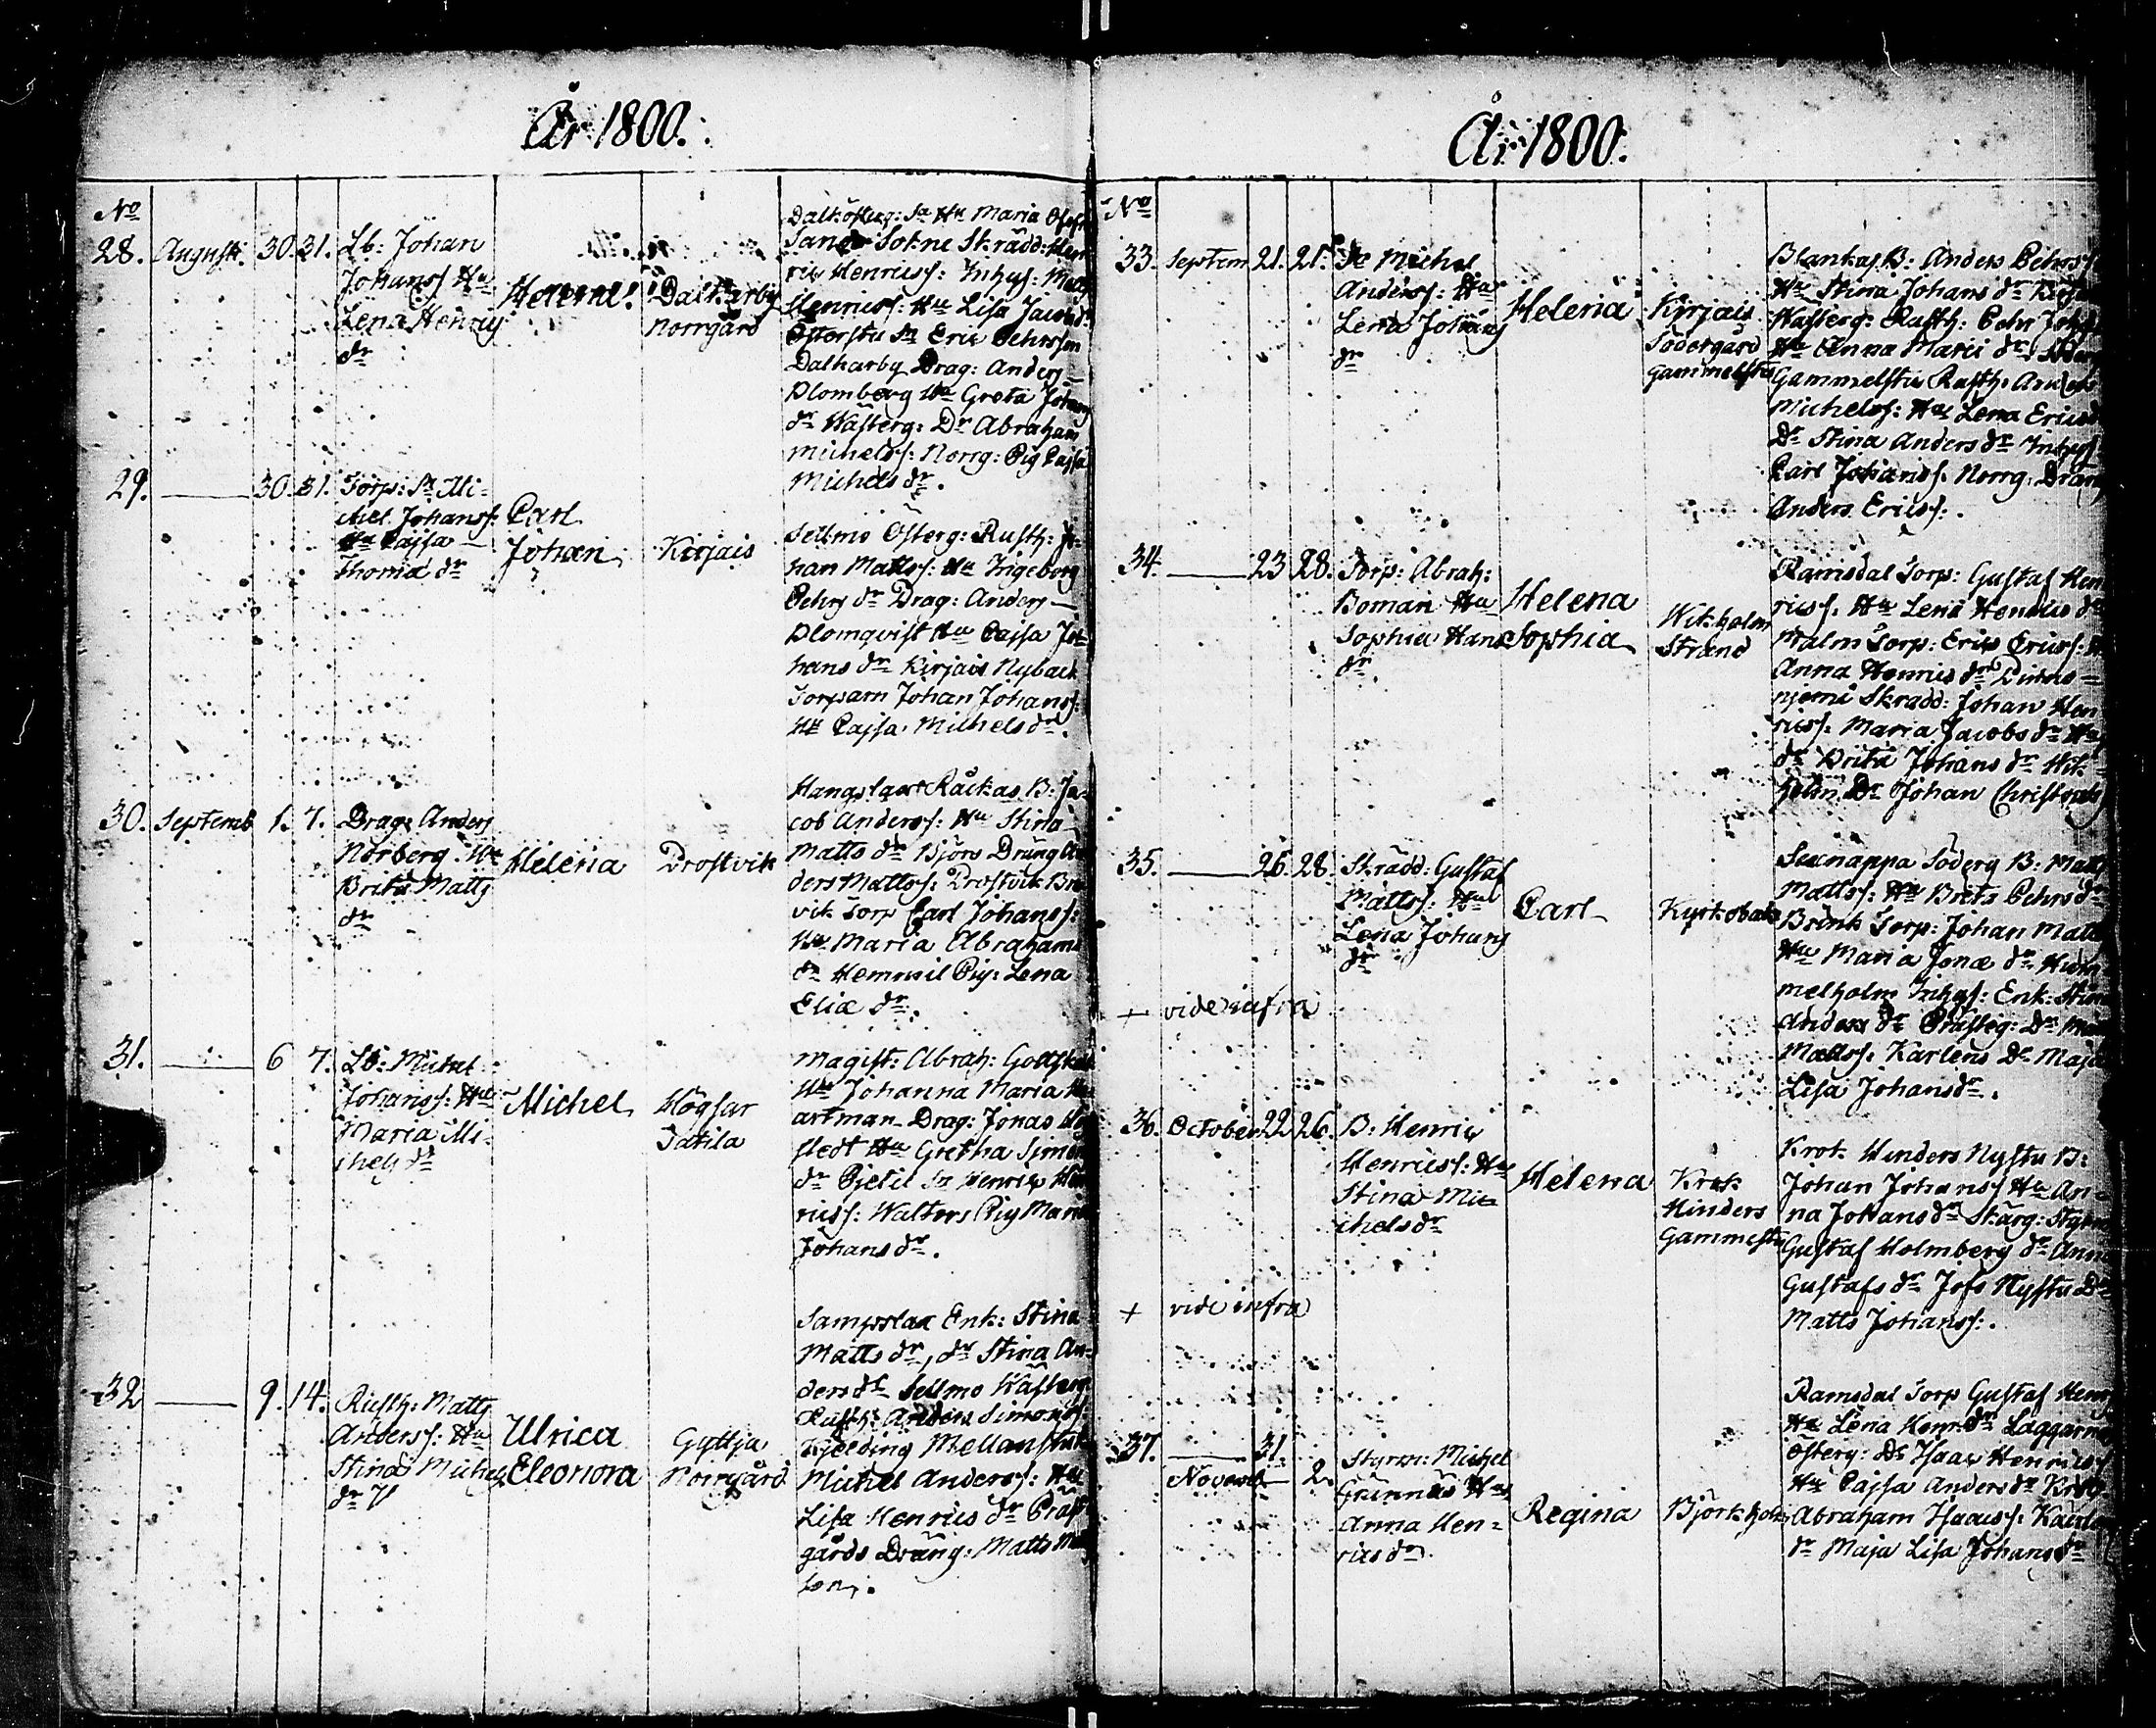 År 1800.
No
28. Augusti. 30. 31. Lb: Johan
Johanss Hu
Lena Henrics
dr
Helena
Dalkarby
Norrgård
Dalk Österg: Sn Hu Maria
Sand Sokne Skrädd: Hen
ric Henricss: Inhys: Matts
Henricss: Hu Lisa Jacobs dr
Sn Eric Pehrsson
Dalkarby Drag: Anders
Blomberg Hu Greta Johans
dr Wästerg: Dr Abraham
Michelss: Norrg: Pig Cajsa
Michels dr.
29. — 30. 31. Torp: Sn Mi-
chel Johanss:
Hu Cajsa
Thomæ dr
Carl
Johan
Kirjais
Sellmo Österg: Rusth: Jo-
han Mattss: Hu Ingeborg
Pehrs dr Drag: Anders
Blomqvist Hu Cajsa Jo-
hans dr Kirjais Nyback
Torparn Johan Johanss:
Hu Cajsa Michels dr.
30. Septemb 1. 7. Drag: Anders
Norberg Hu
Brita Matts
dr
Helena
Drostvik
Hangslax Räckas B: Ja-
cob Anderss: Hu Stina
Matts dr Björs Dräng An
ders Mattss: Drostvik Bre
vik Torp Carl Johanss:
Hu Maria Abrahams
dr Hemmil Pig: Lena
Eliæ dr.
31. — 6 7. Lb: Michel
Johanss: Hu
Maria Mi-
chels dr
Michel
Högsar
Jatila
Magist: Abrah: Gottsk
Hu Johanna Maria
artman Drag: Jonas
stedt Hu Gretha Simons
dr Pjetil Sn Henric Hen
ricss: Walters Pig Maria
Johans dr.
32 — 9. 14. Rusth: Matts
Anderss: Hu
Stina Michels
dr
Ulrica
Eleonora
Gyttja
Norrgård
Sampslax Enk: Stina
Matts dr, dr Stina An-
ders dr Sellmo Wästerg
Rusth: Anders Simonss:
Mellanstu
Michel Anderss: Hu
Lisa Henrics dr Präst
gårds Dräng: Matts Matts
son.
År 1800.
No
33. Septem 21. 21. Sn Michel
Anderss: Hu
Lena Johans
dr
Helena
Kirjais
Södergård
Gammelstu
Blankas B: Anders Pehrss:
Hu Stina Johans dr Kirjais
Wästerg: Rusth: Pehr Johs
Hu Anna Marci dr Söderg
Gammelstu Rusth: Anders
Michelss: Hu Lena Erics
Dr Stina Anders dr Inhys:
Carl Johanss: Norrg: Dräng
Anders Ericss:.
34. — 23 28. Torp: Abrah:
Boman Hu
Sophia Hans
dr.
Helena
Sophia
Wikholm
Strand
Ramsdal Torp: Gustaf Hen
ricss. Hu Lena Henrics dr
Malm Torp: Eric Ericss: H
Anna Henrics dr
njemi Skradd: Johan Hen
ricss: Maria Jacobs dr Hu
dr Brita Johans dr Wik-
holm Dr Johan Christophs
35. — 26. 28. Skrädd: Gustaf
Mattss: Hu
Lena Johans
dr
Carl
Kyrkoback
Sexnappa Söderg B: Matts
Mattss: Hu Brita Pehrs dr
Brink Torp: Johan Matts
Hu Maria Jonæ dr Hum
melholm Inhys: Enk: Stina
Anders dr Prästeg: Dr Matts
Mattss. Karlens Dr Maja
Lisa Johansdr.
+ vide infra
36. October 22 26. B: Henric
Henricss: Hu
Stina Mi-
chels dr
Helena
Krok
Hinders
Gammestu
Krok Hinders Nystu B:
Johan Johanss Hu An-
na Johans dr Skärg: Styrm
Gustaf Holmberg dr Anna
Gustafs dr Jofs Nystu Dr
Matts Johanss:.
+ vide infra
37. — 31.
Novemb — 2. Styrm: Michel
Grönroos Hu
Anna Hen-
rics dr
Regina
Björkholm
Ramsdal Torp Gustaf Henrs
Hu Lena Henr. dr Laggarnäs
Österg: Dr Isaac Henricss
Hu Cajsa Anders dr Krok
Abraham Isacss:
dr Maja Lisa Johans dr